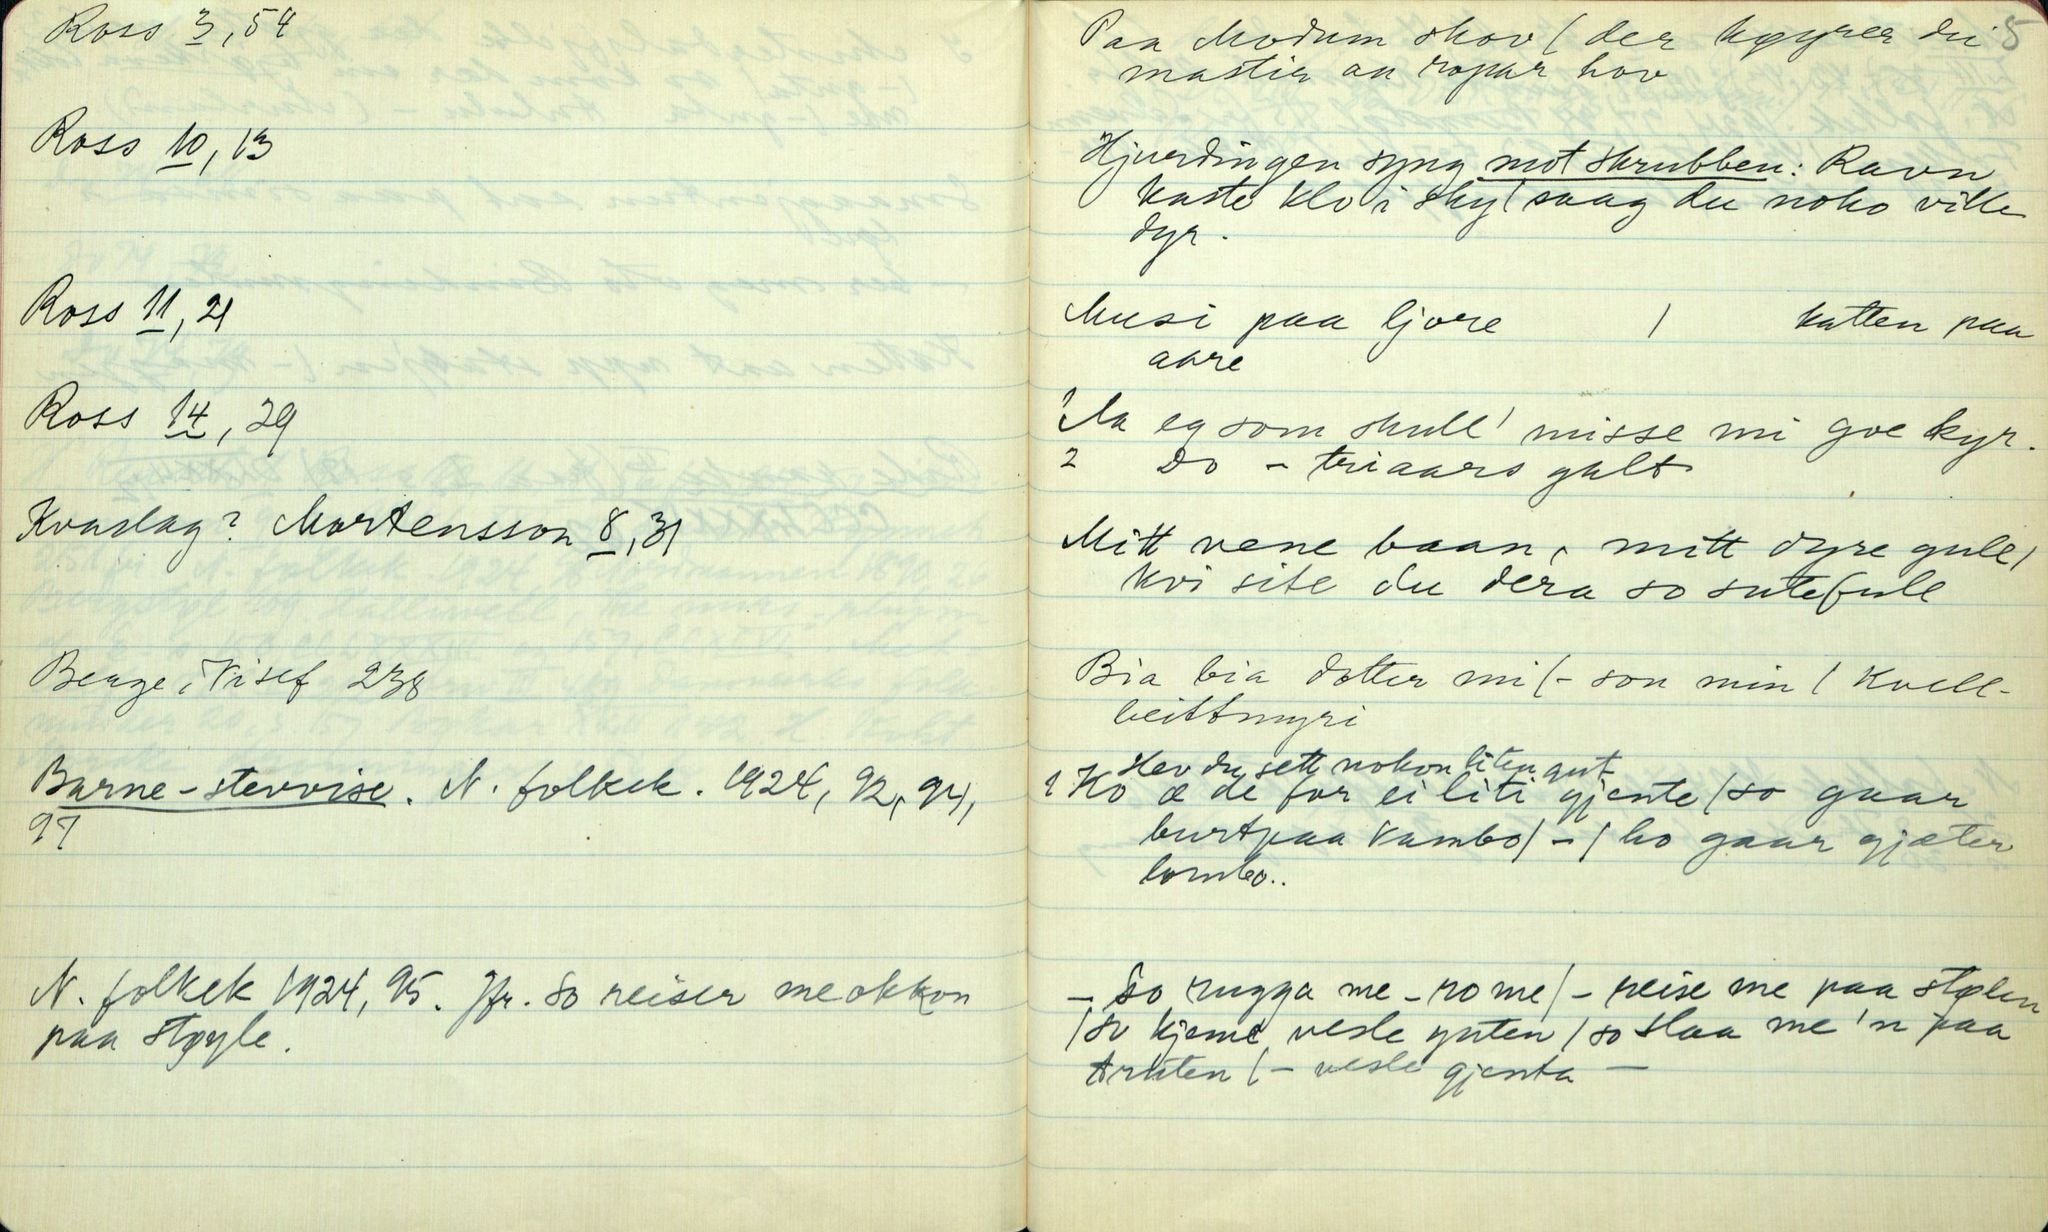 Ross 3, 54
Ross 10, 13
Ross 11, 21
Ross 14, 29
Kvaslag? Mortensson 8, 31
Berge, Visef 238
Barne-stevvise. N. folkek. 1924, 92, 94,
97
N. folkek 1924, 95. Jfr. so reiser me okkon
paa støyle.
5
Paa Modum skov / der køyrer dei
mastir aa ropar hov
Hjurdingen syng mot skrubben: Ravn
kaste klo i sky / saag du noko ville
dyr.
Musi paa ljore / katten paa
aare
1 Aa eg som skull' misse mi goe kyr.
2 Do - triaars galt
Mitt vene baan, mitt dyre gull /
kvi site du dera so sutefull
Bia bia dotter mi / - son min / Kvell-
beittmyri
Hev du sett nokon liten gut
1 Ko æ de for ei liti gjente / so gaar
burtpaa Vambo / - / ho gaar gjæter
lombo..
- So rugga me - ro me / - reise me paa stølen
/ so kjeme vesle guten / so slaa me'n paa
truten / - vesle gjenta -